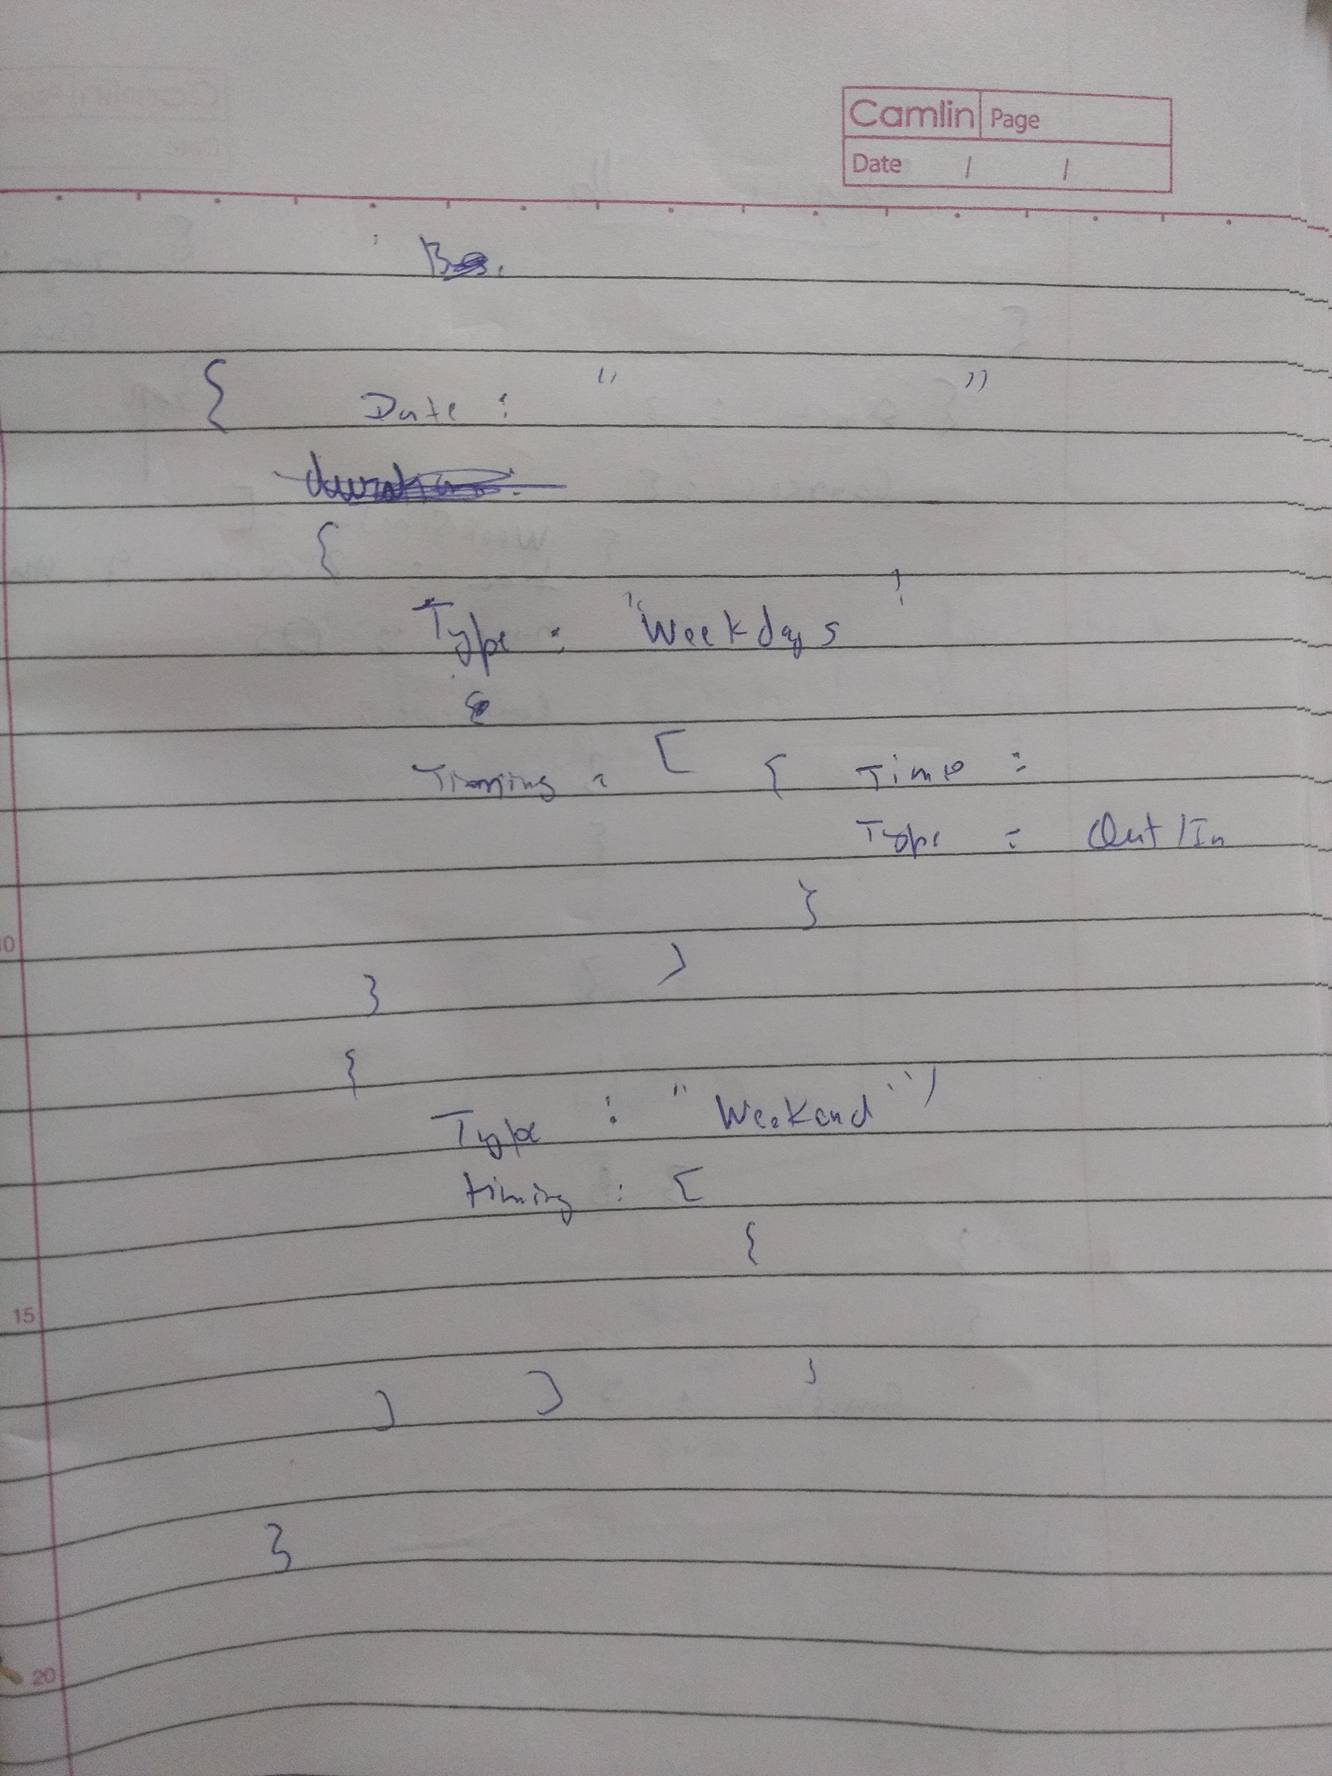 Camlin Page
Date / /
{ Date : " "
{
Type : "Weekdays"
Timing : [ { Time :
Type : Out/In
}
]
}
{
Type : "Weekend",
timing : [
{
} ] }
}
10
15
20